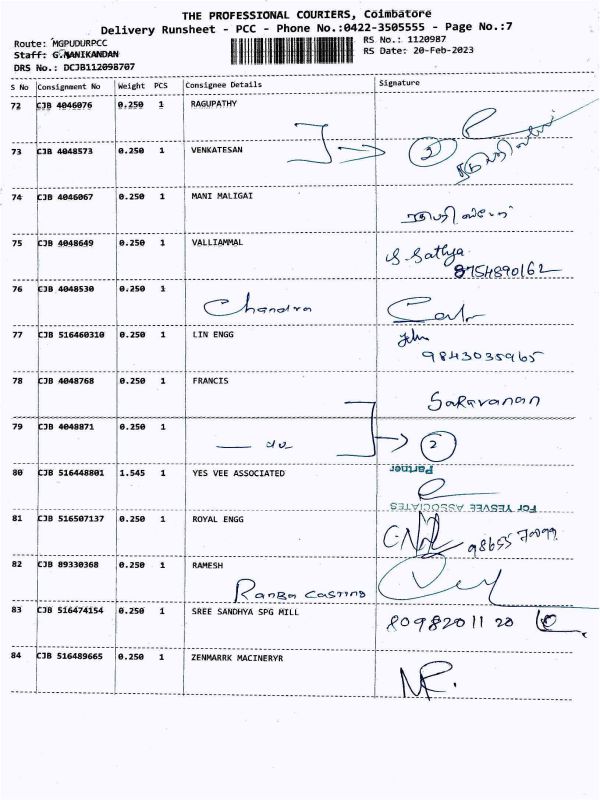 THE PROFESSIONAL COURIERS, Coimbatore
Delivery Runsheet - PCC - Phone No.:0422-3505555 - Page No.:7
Route: MGPUDURPCC
RS No.: 1120987
Staff: G.MANIKANDAN
RS Date: 20-Feb-2023
DRS No.: DCJB112098707
S No Consignment No Weight PCS Consignee Details Signature
72 CJB 4046076 0.250 1 RAGUPATHY
73 CJB 4048573 0.250 1 VENKATESAN 2
74 CJB 4046067 0.250 1 MANI MALIGAI
75 CJB 4048649 0.250 1 VALLIAMMAL S. Sathya
8754890162
76 CJB 4048530 0.250 1
Chandra
77 CJB 516460310 0.250 1 LIN ENGG John
9843035965
78 CJB 4048768 0.250 1 FRANCIS
Saravanan
79 CJB 4048871 0.250 1
do 2
80 CJB 516448801 1.545 1 YES VEE ASSOCIATED Partner
For YESVEE ASSOCIATES
81 CJB 516507137 0.250 1 ROYAL ENGG
82 CJB 89330368 0.250 1 RAMESH
Ranba Casting
83 CJB 516474154 0.250 1 SREE SANDHYA SPG MILL 8098201120
84 CJB 516489665 0.250 1 ZENMARRK MACINERYR